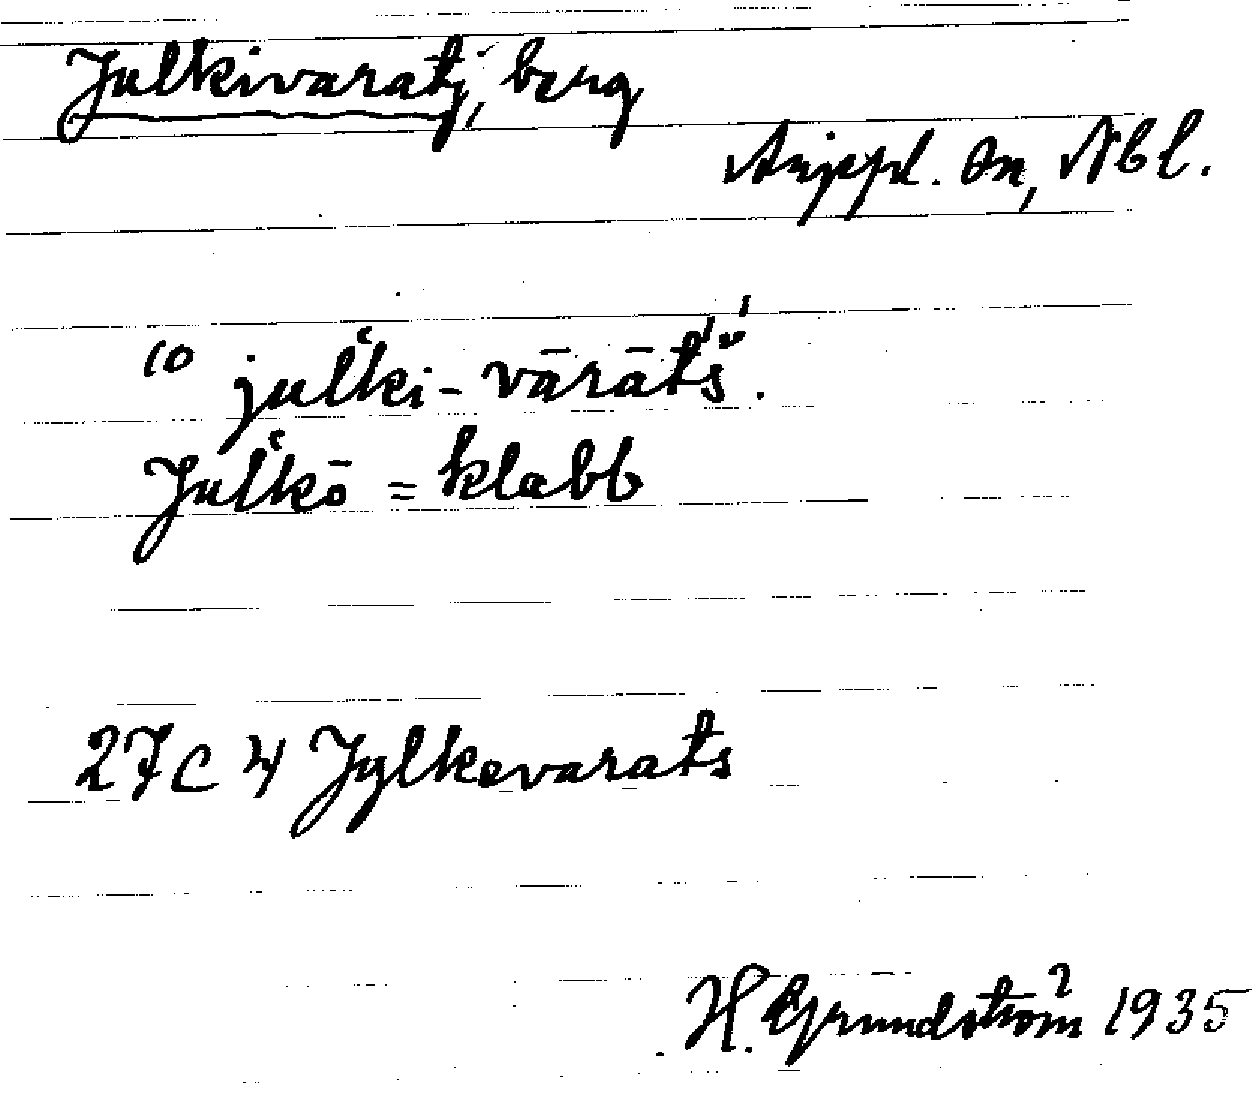 Julkivaratj, berg
Arjeppl. sn, Nbl.
10 jul‛ki-vārāt's'.
Jul‛kō = klabb
27C 4 Jylkevarats
H. Grundström 1935